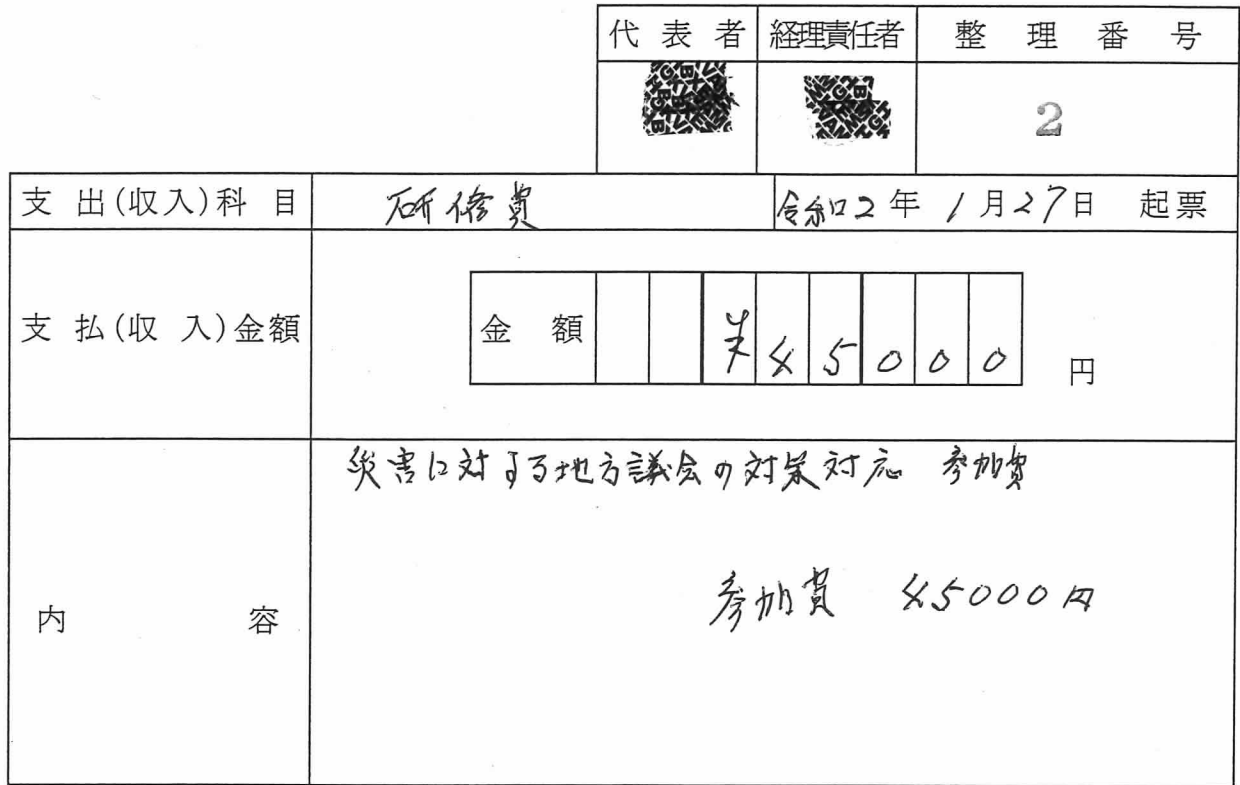 代表者 経理責任者 整理番号
2
支出(収入)科目 研修費 令和2年1月27日 起票
支払(収入)金額 金額 ¥45000 円
災害に対する地方議会の対策対応 参加費
参加費 45000円
内容